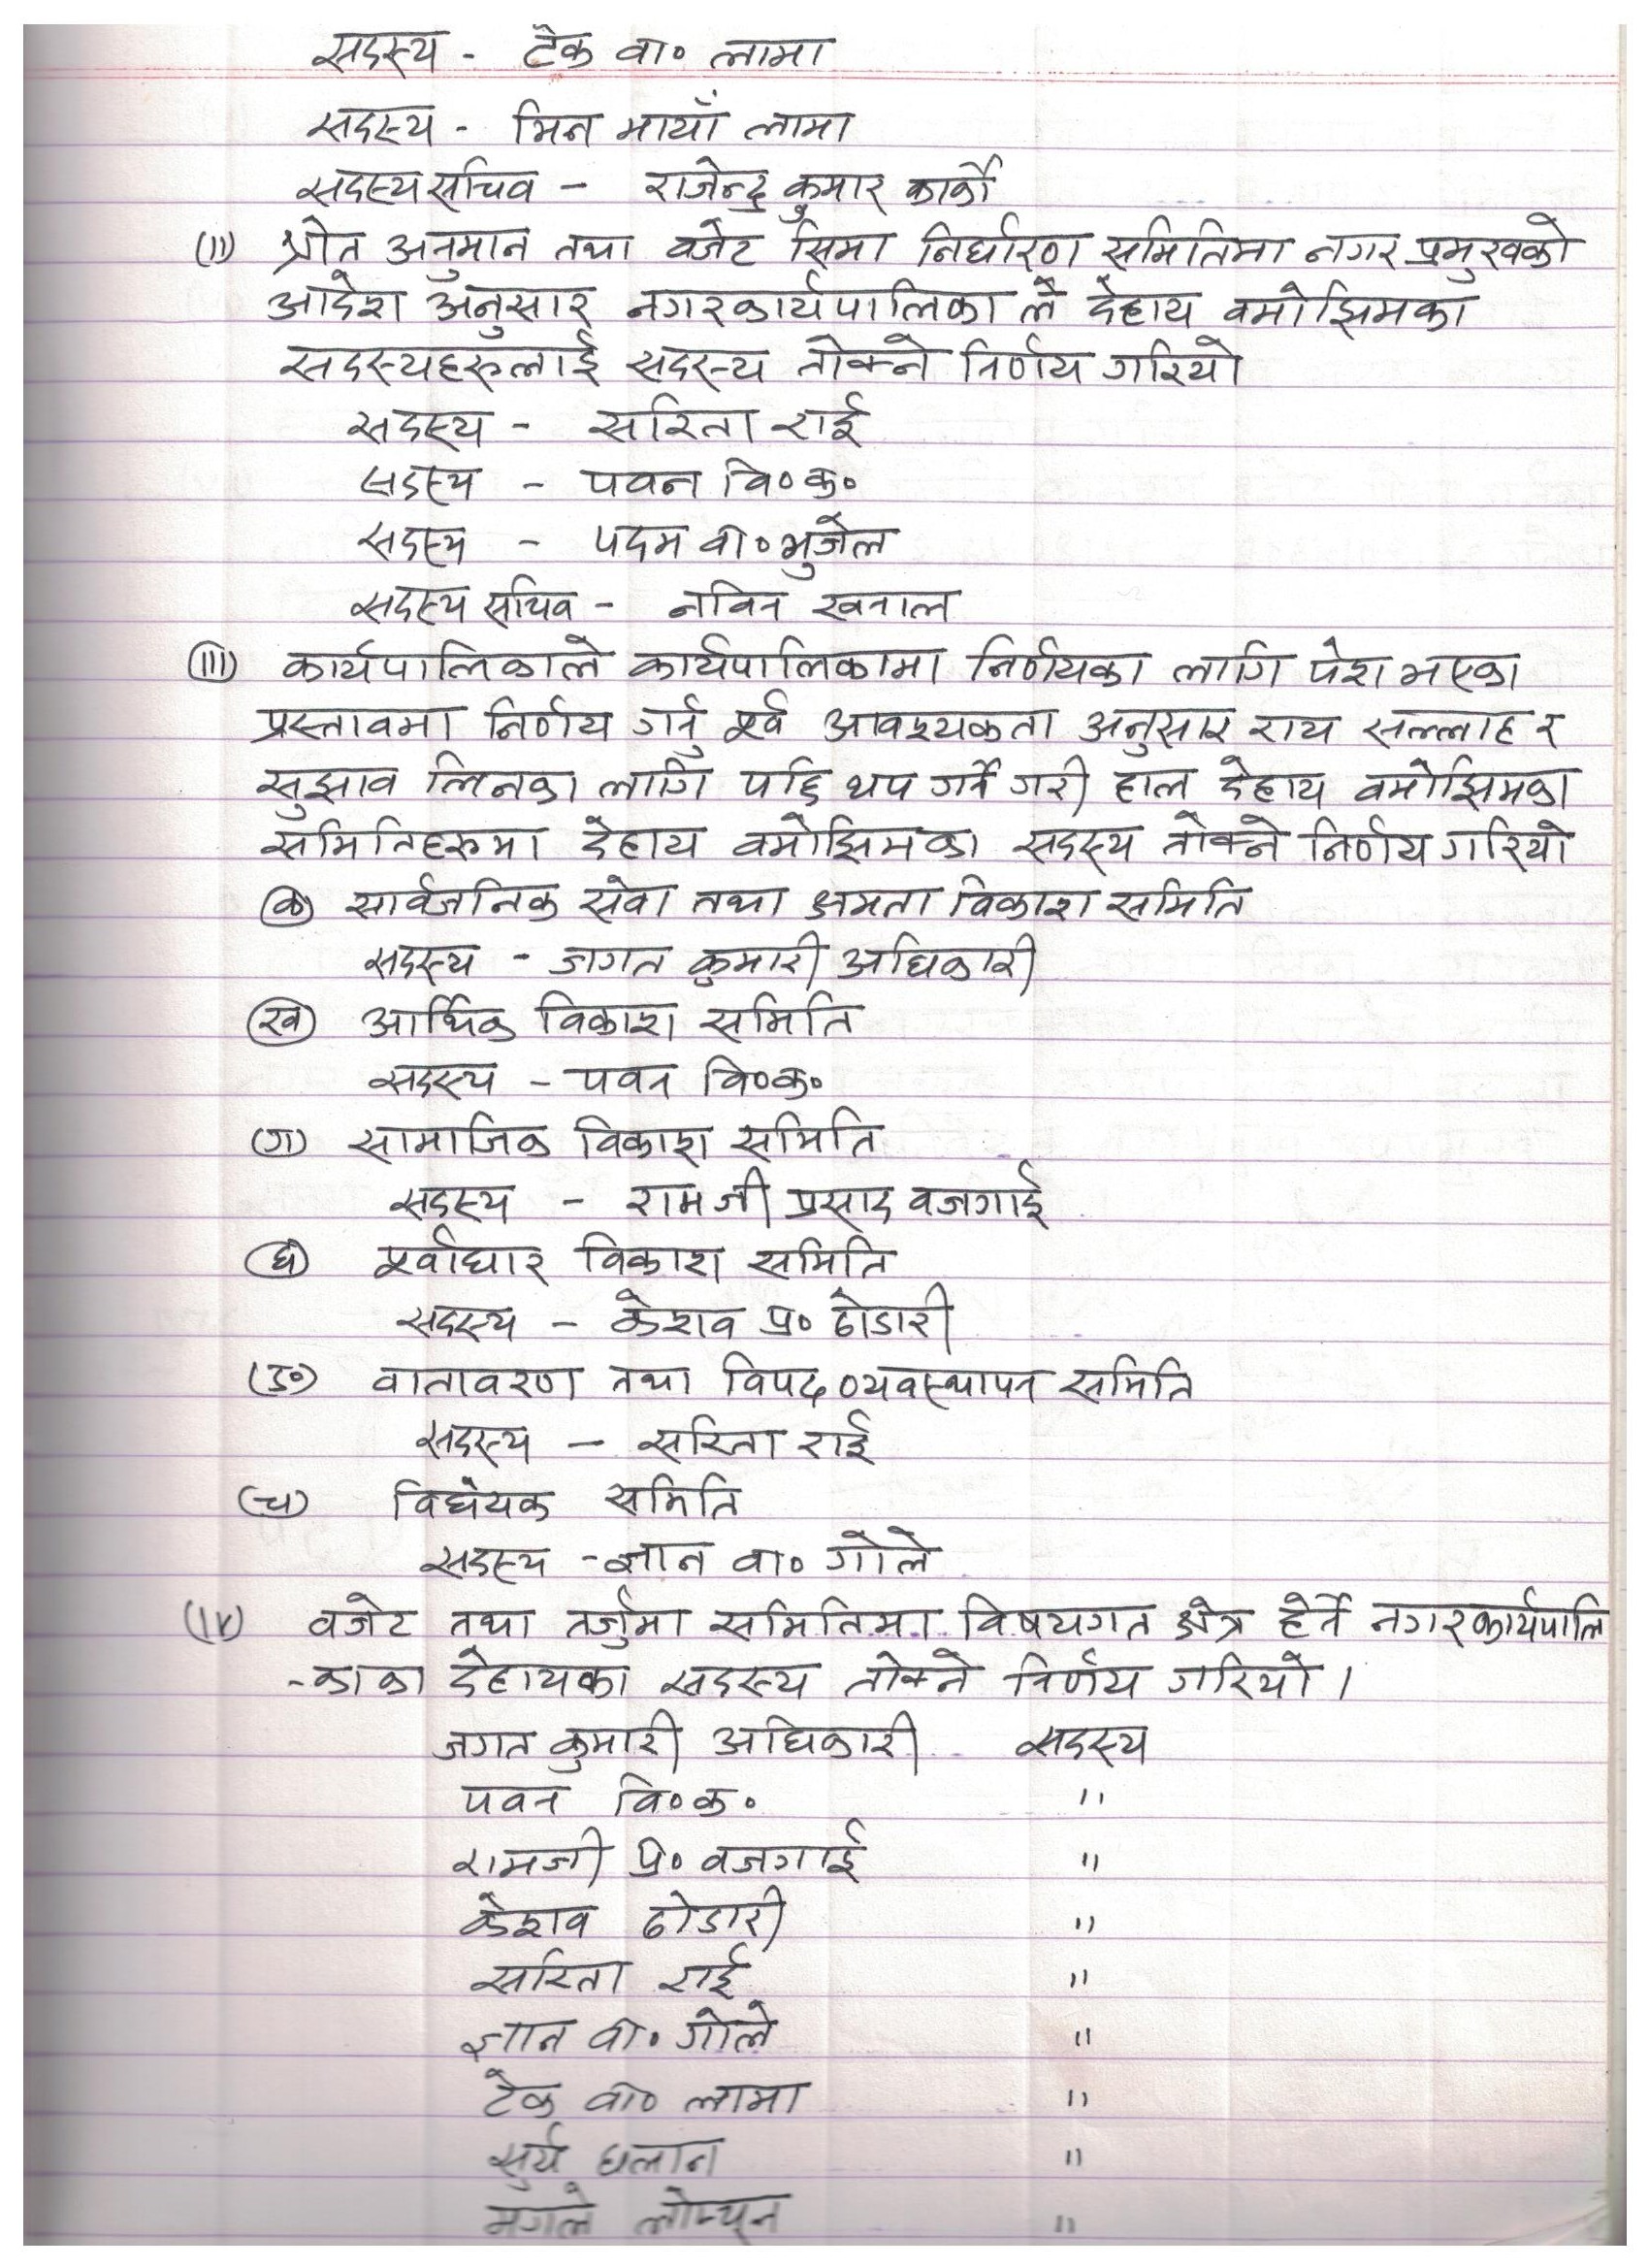 सदस्य - टेक वा० लामा
सदस्य - मिन मायाँ लामा
सदस्य सचिव - राजेन्द्र कुमार कार्की
(II) श्रोत अनुमान तथा वजेट सिमा निर्धारण समितिमा नगर प्रमुखको
आदेश अनुसार नगरकार्यपालिका ले देहाय वमोझिमका
सदस्यहरुलाई सदस्य तोक्ने निर्णय गरियो
सदस्य - सरिता राई
सदस्य - पवन वि०क०
सदस्य - पदम वा० भुजेल
सदस्य सचिव - नविन खनाल
(III) कार्यपालिकाले कार्यपालिकामा निर्णयका लागि पेश भएका
प्रस्तावमा निर्णय गर्नु पूर्व आवश्यकता अनुसार राय सल्लाह र
सुझाव लिनका लागि पछि थप गर्ने गरी हाल देहाय वमोझिमका
समितिहरुमा देहाय वमोझिमका सदस्य तोक्ने निर्णय गरियो
(क) सार्वजनिक सेवा तथा क्षमता विकाश समिति
सदस्य - जगत कुमारी अधिकारी
(ख) आर्थिक विकाश समिति
सदस्य - पवन वि०क०
(ग) सामाजिक विकाश समिति
सदस्य - रामजी प्रसाद वजगाई
(घ) पूर्वाधार विकाश समिति
सदस्य - केशव प्र० ढोडारी
(ङ) वातावरण तथा विपद व्यवस्थापन समिति
सदस्य - सरिता राई
(च) विधेयक समिति
सदस्य - ज्ञान वा० गोले
(IV) वजेट तथा तर्जुमा समितिमा विषयगत क्षेत्र हेर्ने नगरकार्यपालि
-काका देहायका सदस्य तोक्ने निर्णय गरियो ।
जगत कुमारी अधिकारी सदस्य
पवन वि०क० "
रामजी प्र० वजगाई "
केशव ढोडारी "
सरिता राई "
ज्ञान वा० गोले "
टेक वा० लामा "
सुर्य घलान "
मंगले लोप्चन "